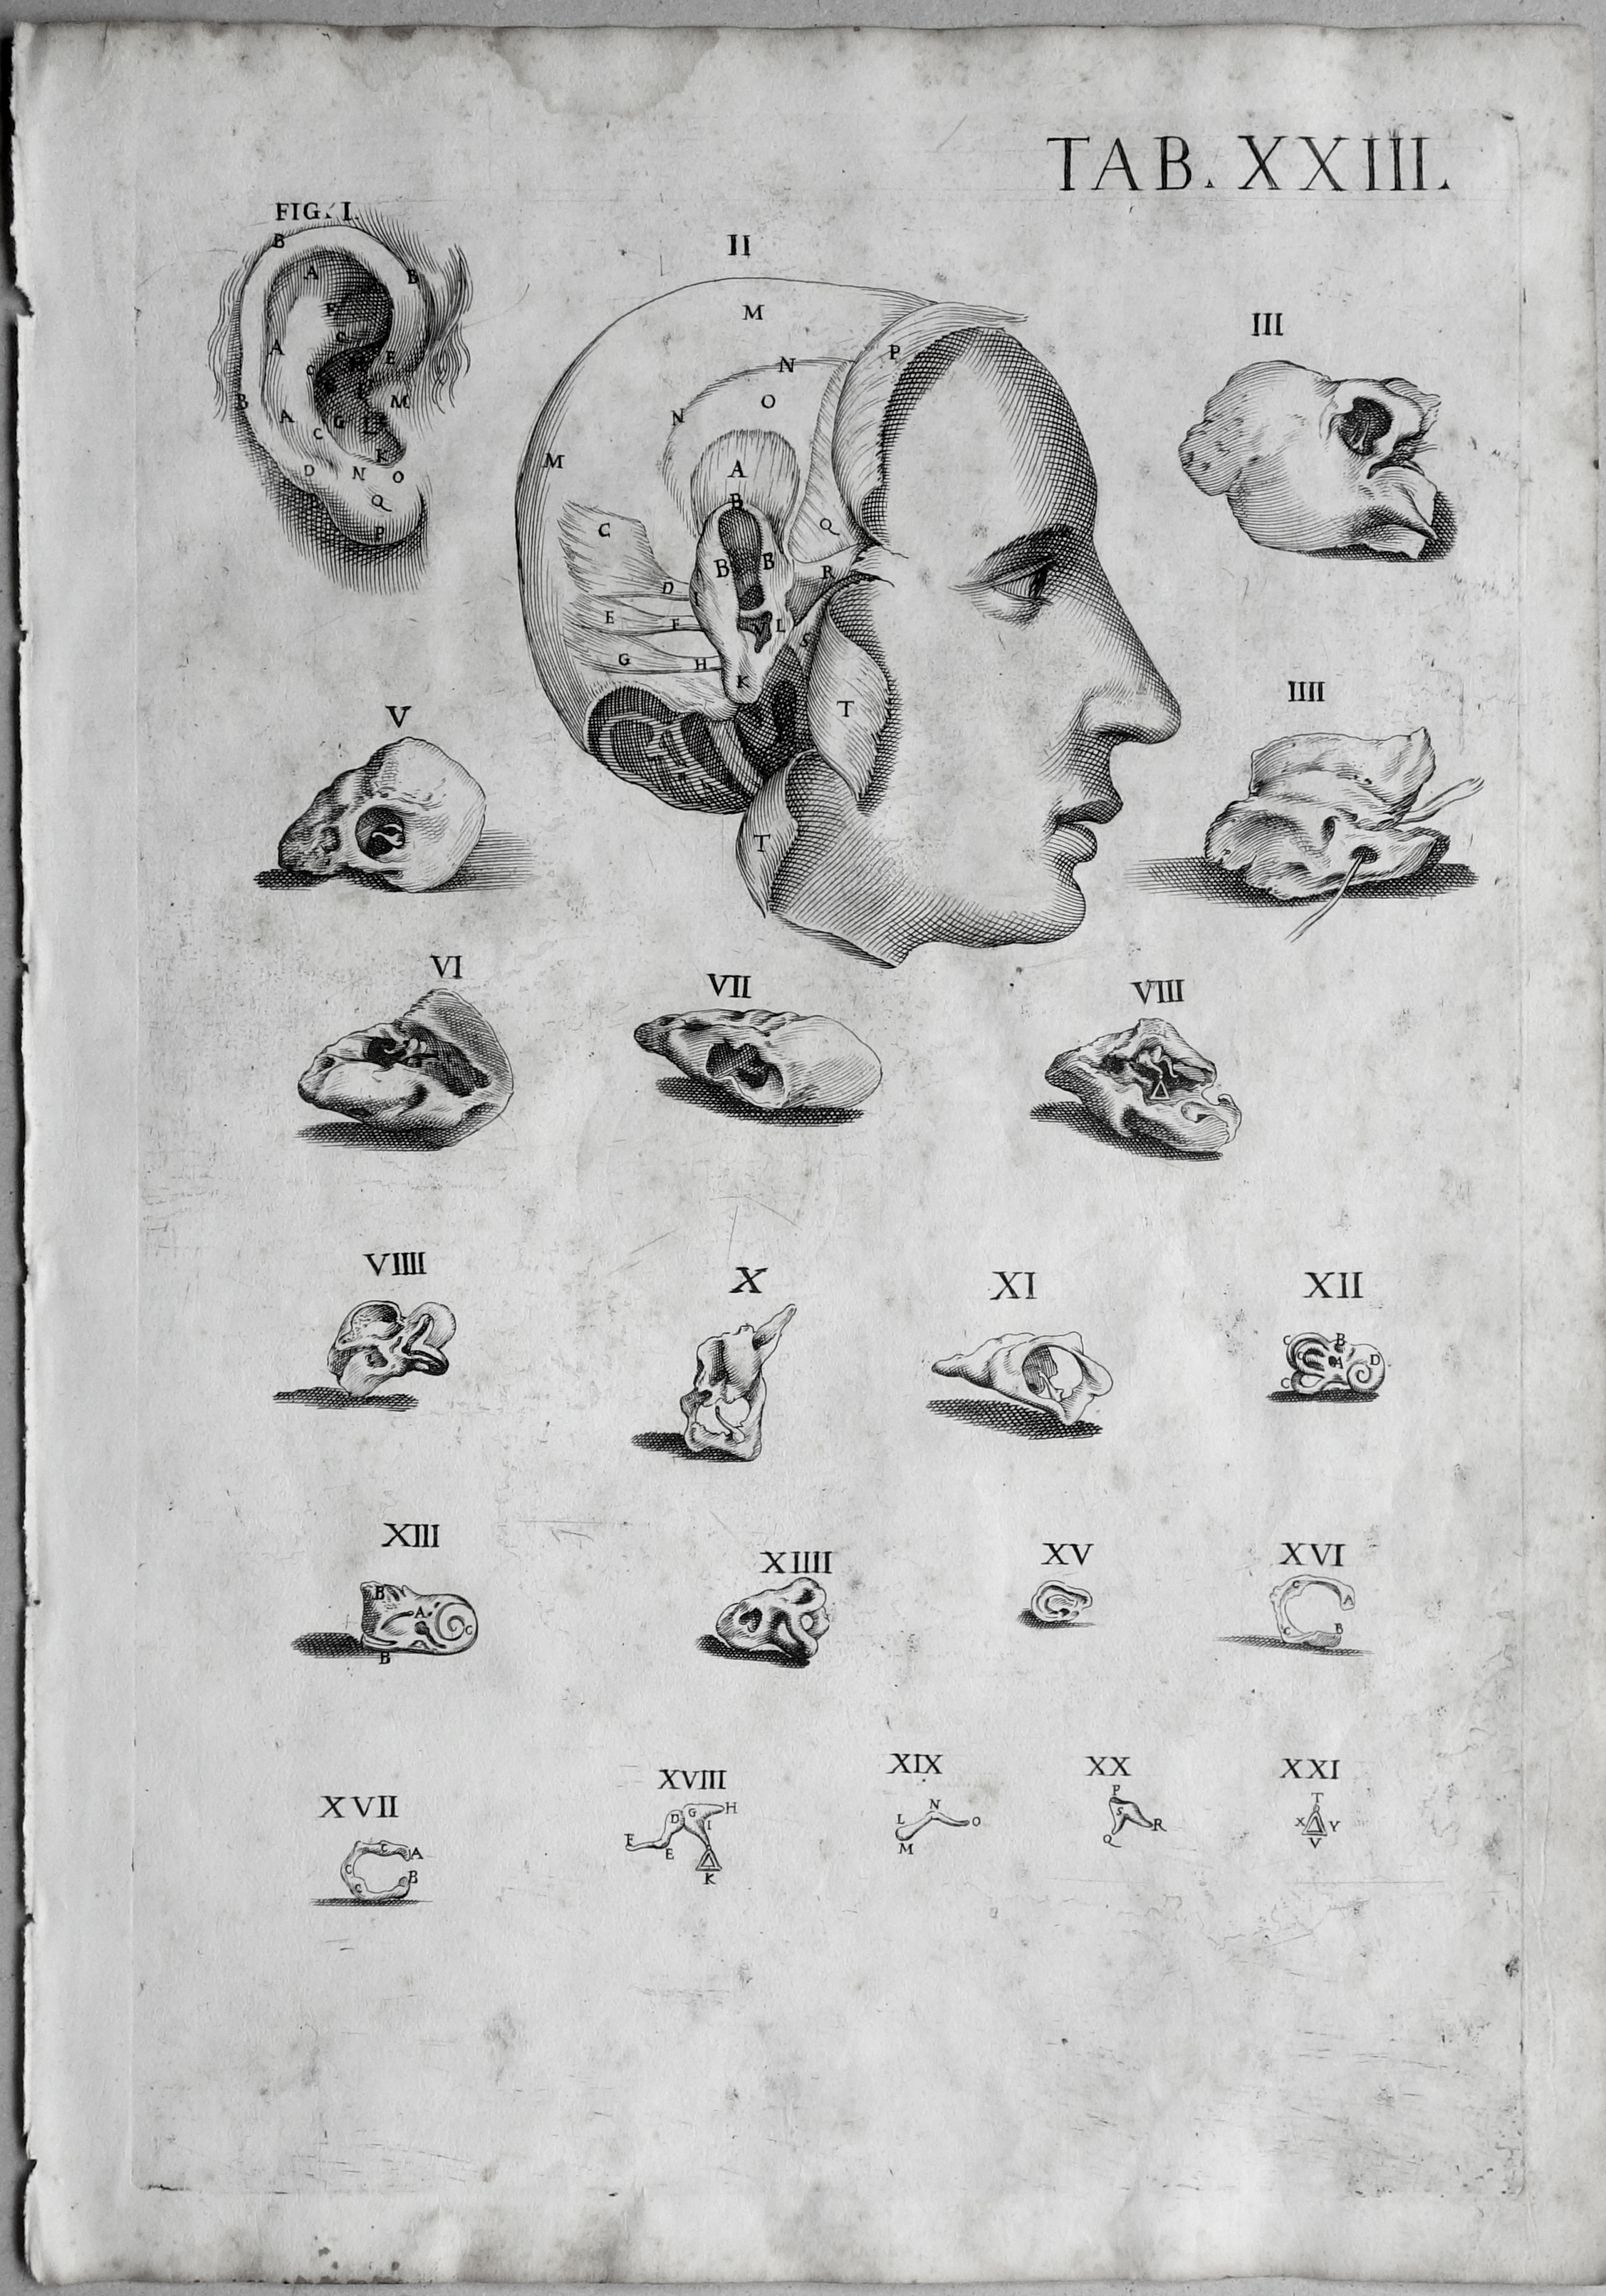 TAB. XXIII.
FIG. I.
B
A
B
F
C
A
C
E
B
A
M
G
L
C
K
D
N
O
Q
P
II
M
N
P
N
O
M
A
B
C
Q
B
B
R
D
I
E
F
L
S
G
H
K
T
T
III
IIII
V
VI
VII
VIII
VIIII
X
XI
XII
C
B
C
A
D
C
XIII
B
A
C
B
XIIII
XV
XVI
C
A
C
B
XVII
C
A
C
B
C
XVIII
D
G
H
I
F
E
K
XIX
L
N
O
M
XX
P
S
Q
R
XXI
T
X
Y
V